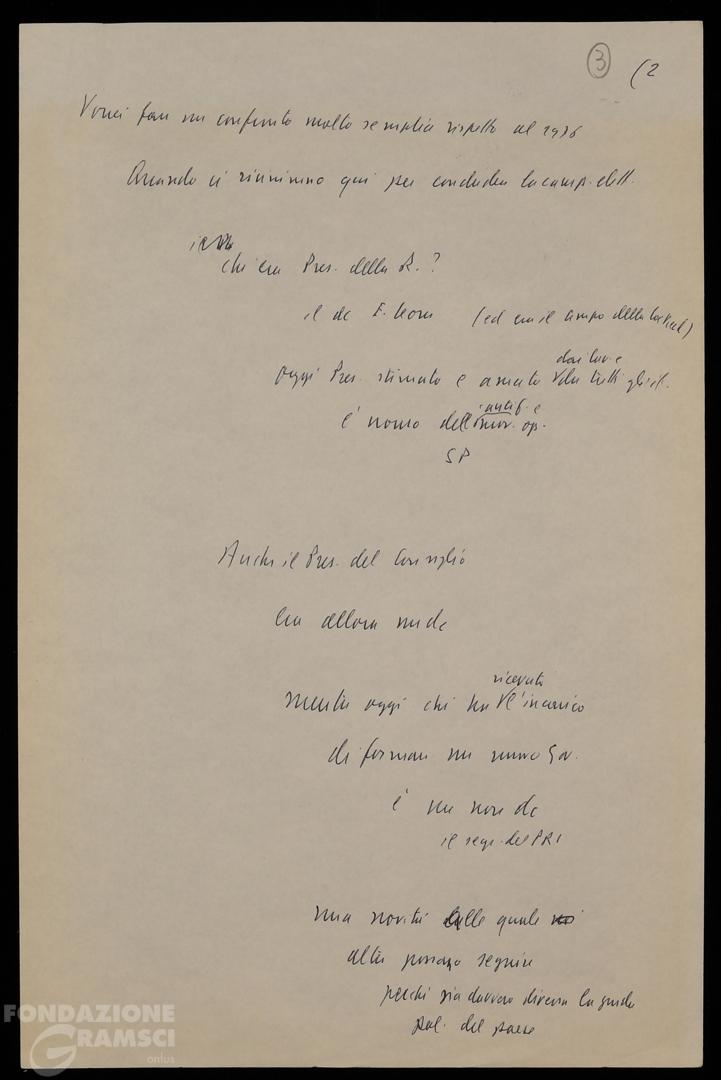 3 (2
Vorrei fare un confronto molto semplice rispetto al 1976
Quando ci riunimmo qui per concludere la camp. elett.
chi era Pres. della R.?
il dc F. Leone (ed era il tempo della Lockeed)
dai lav. e
oggi Pres. stimato e amato da tutti gli it.
antif. e
è uomo dell mov. op.
SP
Anche il Pres. del Consiglio
era allora un dc
ricevuto
mentre oggi chi ha l'incarico
di formare un nuovo Gov.
è un non dc
il segr. del PRI
una novità alle quale
altre possano seguire
perché sia davvero diversa la guida
pol. del paese
FONDAZIONE
GRAMSCI
onlus